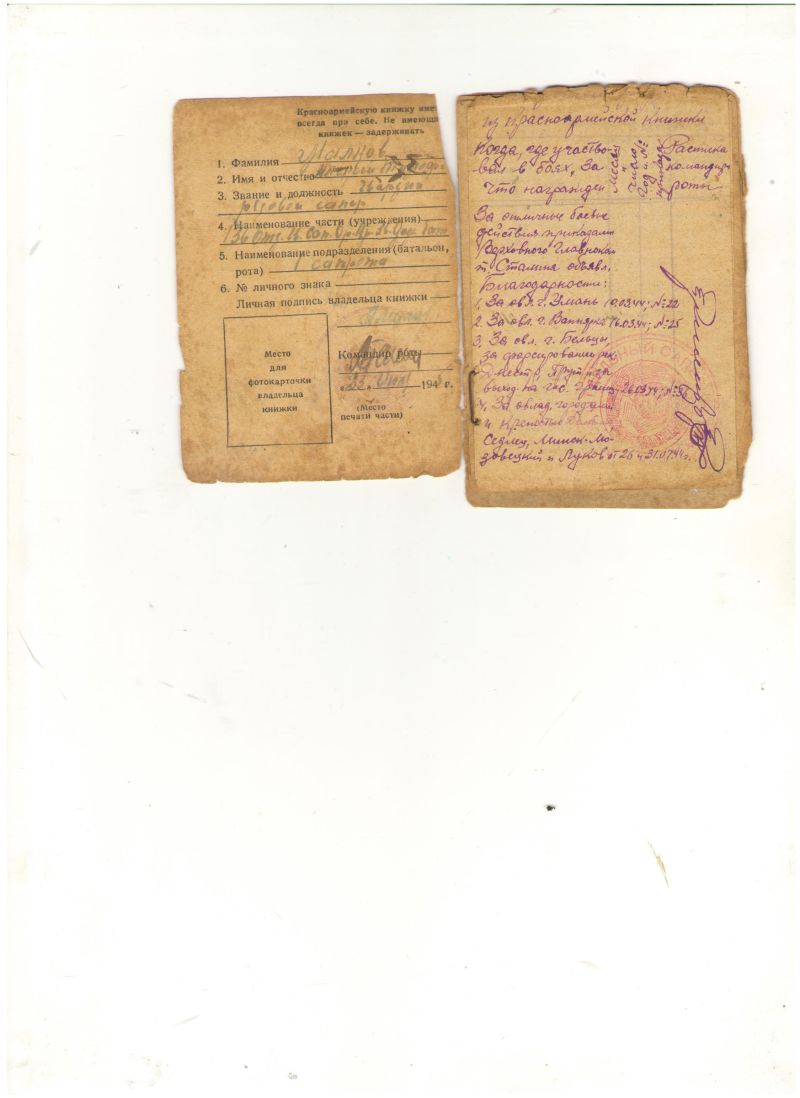 Красноармейскую книжку име
всегда при себе. Не имеющи
книжек — задерживать
1. Фамилия Малнов
2. Имя и отчество
3. Звание и должность Гвардии
рядовой сапер
4. Наименование части (учреждения)
36 Отд.
5. Наименование подразделения (батальон,
рота) 1 сапрота
6. № личного знака
Личная подпись владельца книжки
Место
для
фотокарточки
владельца
книжки
Командир роты
23 194 г.
(Место
печати части)
из красноармейской книжки
Когда, где участво-
вал в боях, за
что награжден
Месяц
число
год и №
приказа
Расписка
командир
роты
За отличные боевые
действия приказами
Верховного Главноком
т. Сталина объявл.
Благодарности:
1. За овл. г. Умань 10.03.44; №22
2. За овл. г. Вапнярка 16.03.44; №25
3. За овл. г. Бельцы,
за форсирование рек
Днестр, Прут и за
выход на гос. границ 26.03.44;
4. За овлад. городами
и крепостью
Седлец, Минск-Мо-
зовецкий и Луков от 26 и 31.07.44г.